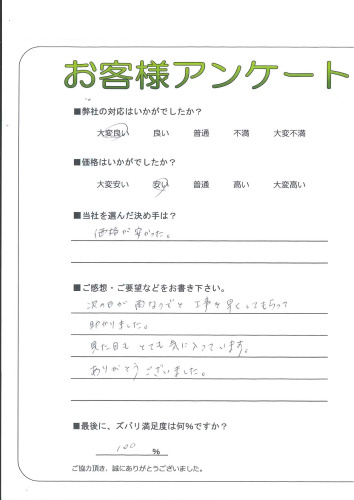 お客様アンケート
■弊社の対応はいかがでしたか？
大変良い 良い 普通 不満 大変不満
■価格はいかがでしたか？
大変安い 安い 普通 高い 大変高い
■当社を選んだ決め手は？
価格が安かった。
■ご感想・ご要望などをお書き下さい。
次の日が雨なのでと 工事を早くしてもらって
助かりました。
見た目も とても気に入っています。
ありがとうございました。
■最後に、ズバリ満足度は何%ですか？
100 %
ご協力頂き、誠にありがとうございました。